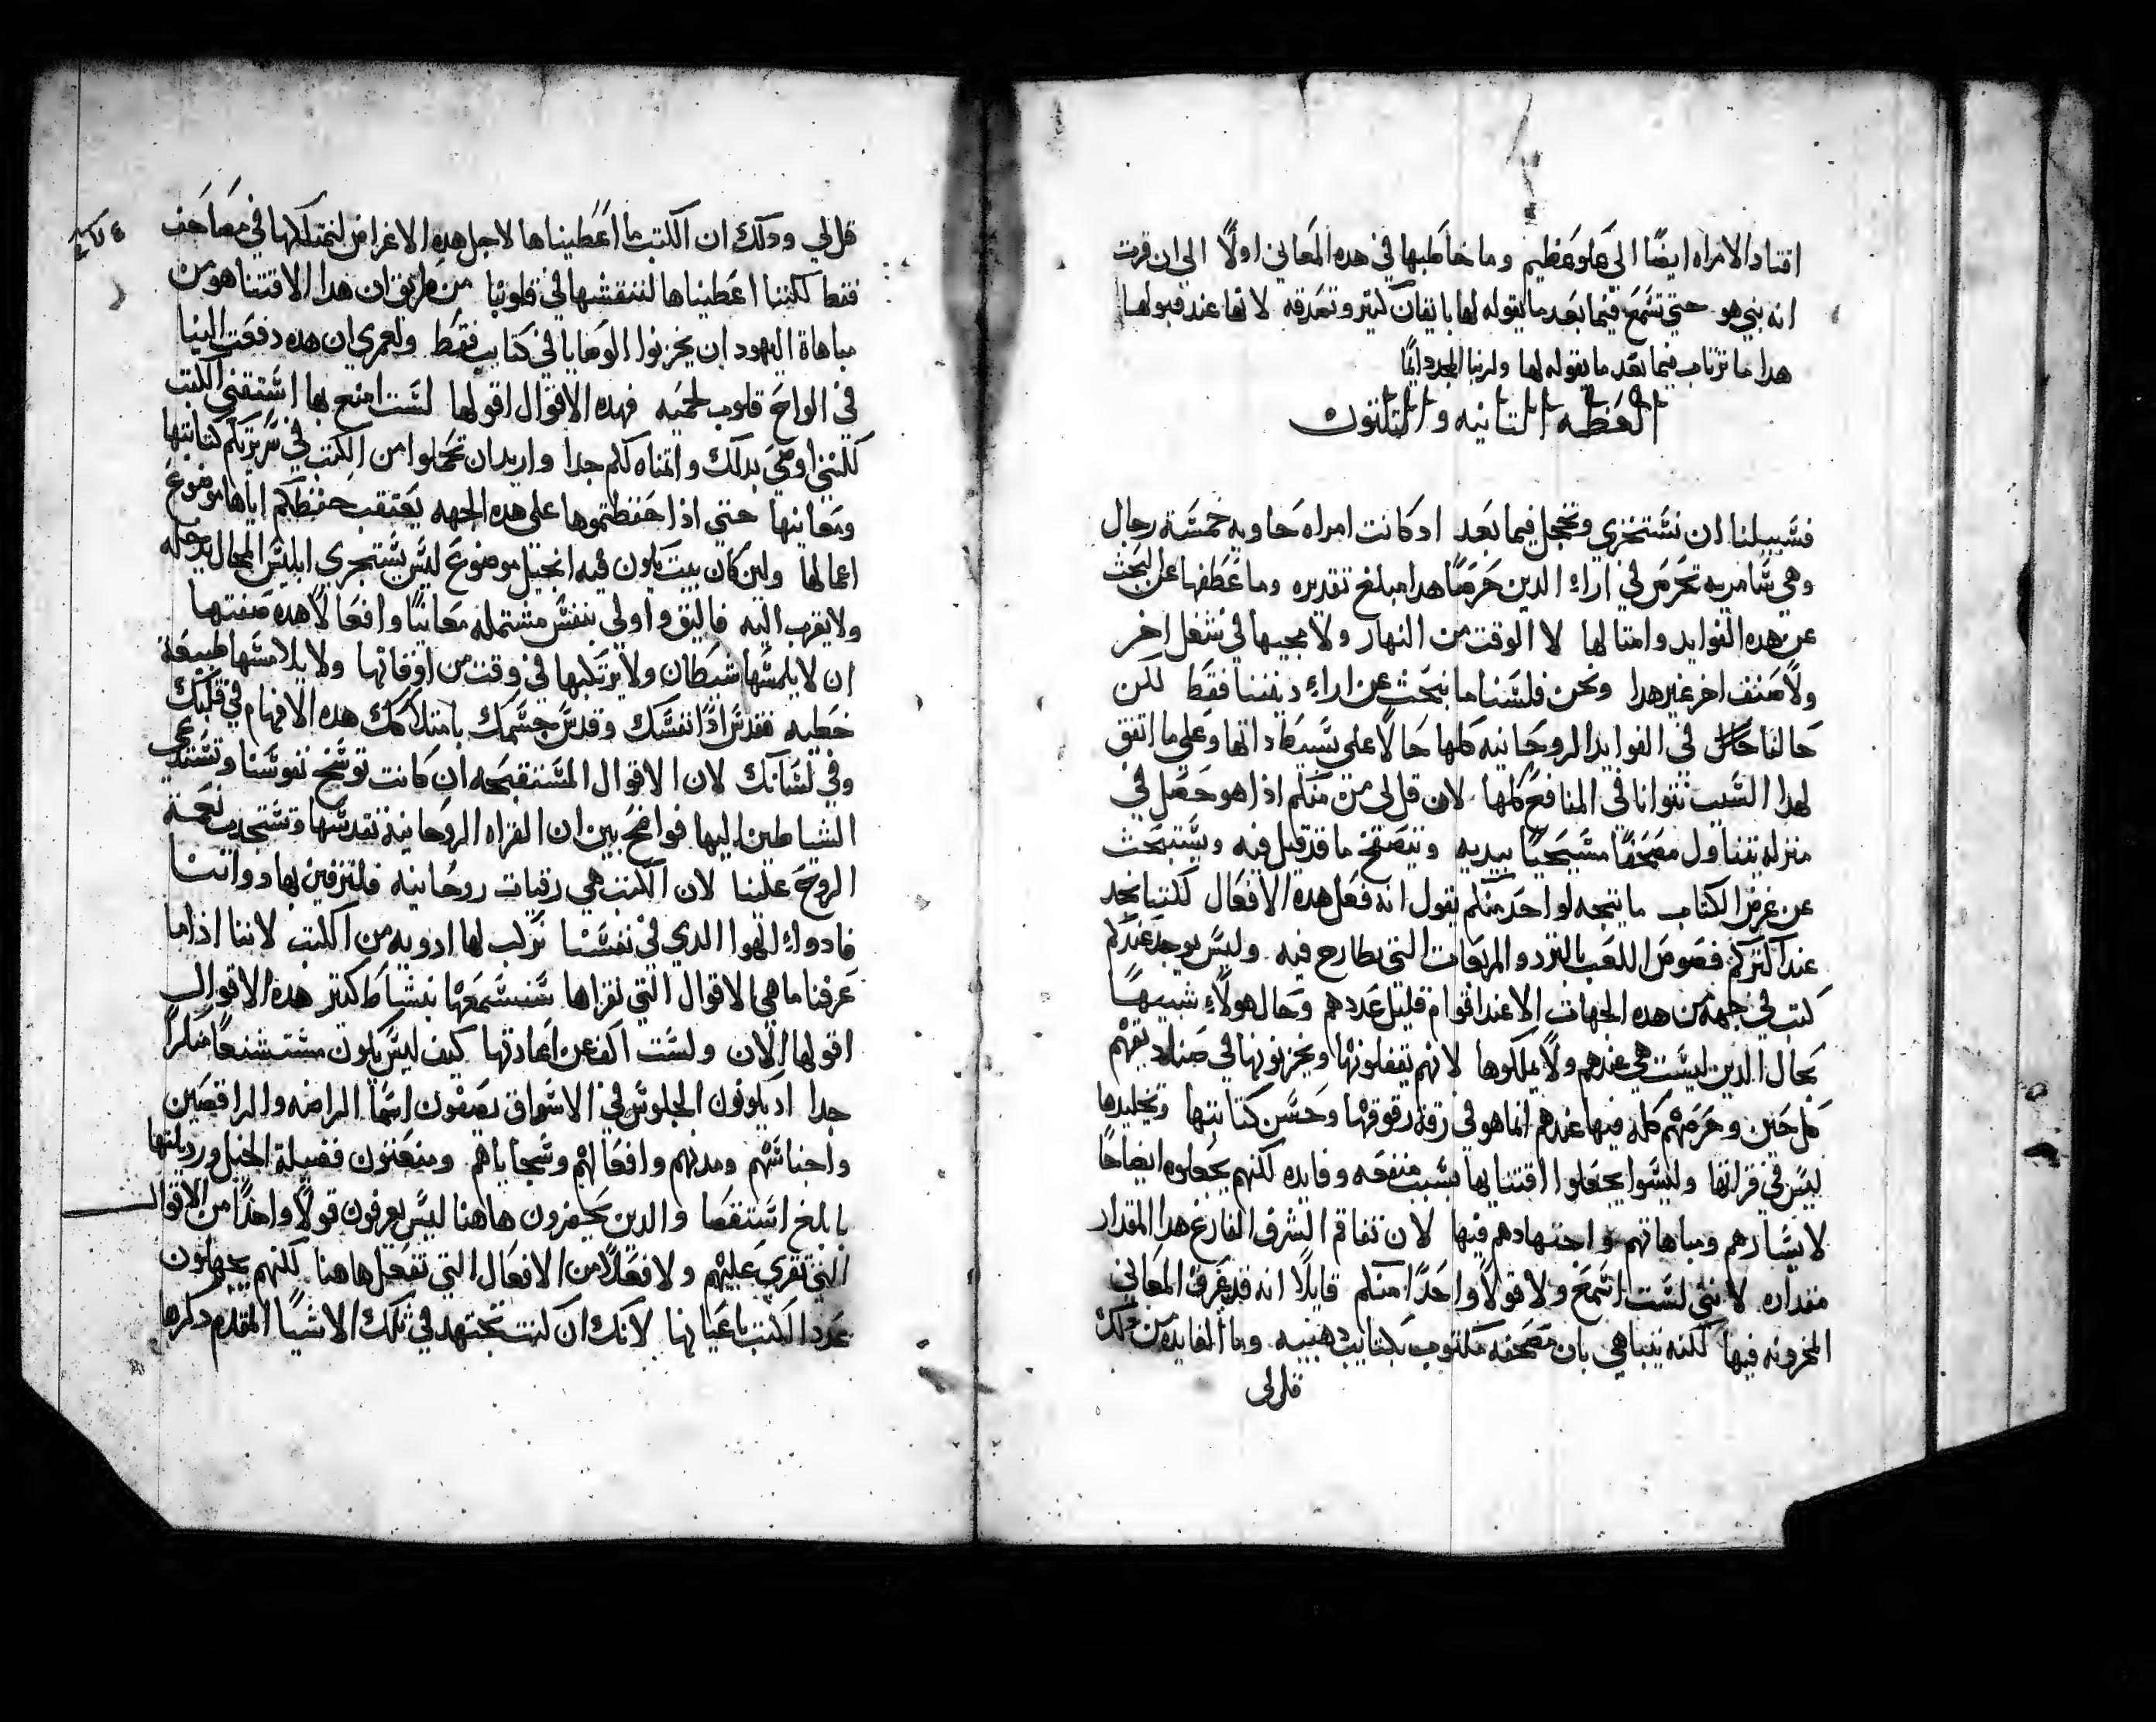 اقتاد الامراه ايضًا الي علو عظيم وما خاطبها في هده المعاني اولًا الي ان قرت
انه نبي هو حتي تسمع فيما بعد ما يقوله لها بايقان كتير وتصدقه لانها عند قبولها
هدا ما ترتاب فيما بعد ما يقوله لها ولربنا المجد دايمًا
العظه التانيه والتلتون
فسبيلنا ان نستخزي ونخجل فيما بعد اد كانت امراه حاويه خمسة رجال
وهي سامريه تحرص في اراء الدين حرصًا هدا مبلغ تقديره وما عطفها عن البحث
عن هده الفوايد وامتالها لا الوقت من النهار ولا مجيها في شغل اخر
ولا صنف اخر غير هدا ونحن فلسنا ما نبحث عن اراء ديننا فقط لكن
حالنا حال في الفوايد الروحانيه كلها حالًا علي بسيط داتها وعلي ما اتفق
لهدا السبب نتوانا في المنافع كلها لان قل لي من منكم اذا هو حصل في
منزله يتناول مصحفًا مسيحيًا بيديه ويتصفح ما قد قيل فيه ويستبحث
عن غرض الكتاب ما يتجه لواحد منكم يقول انه فعل هده الافعال لكننا نجد
عند اكتركم فصوص اللعب بالنرد والمربعات التي يطارح فيه وليس يوجد عندكم
كتب في جهه من هده الجهات الا عند اقوام قليل عددهم وحال هولاء شبيهًا
بحال الدين ليست هي عندهم ولا يملكوها لانهم يقفلونها ويخزنونها في صناديقهم
كل حين وحرصهم كله فيها عندهم انما هو في رقة رقوقها وحسن كتابتها وتجليدها
ليس في قرااتها وليسوا يجعلوا اقتنايها بسبب منفعه وفايده لكنهم يجعلوه ايضاحًا
لايسارهم ومباهاتهم واجتهادهم فيها لان تفاقم الشرف الفارغ هدا المقدار
مقداره لانني لست اسمع ولا قولًا واحدًا منكم قايلًا انه قد عرف المعاني
المخزونه فيها لكنه يتباهي بان مصحفه مكتوب بكتابه دهبيه وما الفايده من دلك
قل لي
قل لي ودلك ان الكتب ما اعطيناها لاجل هده الاغراض لنمتلكها في مصاحف
فقط لكننا اعطيناها لننقشها في قلوبنا من طريق ان هدا الاقتنا هو من
مباهاة اليهود ان يخزنوا الوصايا في كتاب فقط ولعمري ان هده دفعت الينا
في الواح قلوب لحميه فهده الاقوال اقولها لست امنع بها استقني الكتب
لكنني اوصي بدلك واتمناه لكم جدا واريد ان تحملوا من الكتب في سريرتكم كتابتها
ومعانيها حتي اذا حفظتموها علي هده الجهه يعتقب حفظكم اياها موضوع
اعمالها ولين كان بيت يكون فيه انجيل موضوع ليس يستجري ابليس المحال يدخله
ولا يقرب اليه فاليق واولي بنفس مشتمله معانيًا وافعالًا هده صفتها
ان لا يلمسها شيطان ولا يرتكبها في وقت من اوقاتها ولا يلامسها طبيعة
خطيه فقدس ادًا نفسك وقدس جسمك بامتلاكك هده الافهام في قلبك
وفي لسانك لان الاقوال المستقبحه ان كانت توسخ نفوسنا وتستدعي
الشياطين اليها فواضح بين ان القراه الروحانية تقدسها وتستجدب نعمة
الروح علينا لان الكتب هي رقيات روحانيه فلنترقين بها دواتنا
فادواء الهوا الدي في نفسنا نركب لها ادويه من الكتب لاننا اذا ما
عرفنا ما هي الاقوال التي نقراها سنسمعها بنشاط كتير هده الاقوال
اقولها الان ولست اكف عن اعادتها كيف ليس يكون مستشنعًا منكرًا
جدا اد يكونون الجلوس في الاسواق يصفون اسما الراضه والراقصين
واجناسهم ومدنهم وافعالهم وسجاياهم وينعتون فضيلة الخيل ورديلتها
بابلغ استقصا والدين يحضرون هاهنا ليس يعرفون قولًا واحدًا من الاقوال
التي تقري عليهم ولا فعلًا من الافعال التي تفعل هاهنا لكنهم يجهلون
عدد الكتب باعيانها لانك ان كنت تجتهد في تلك الاشيا المقدم دكرها